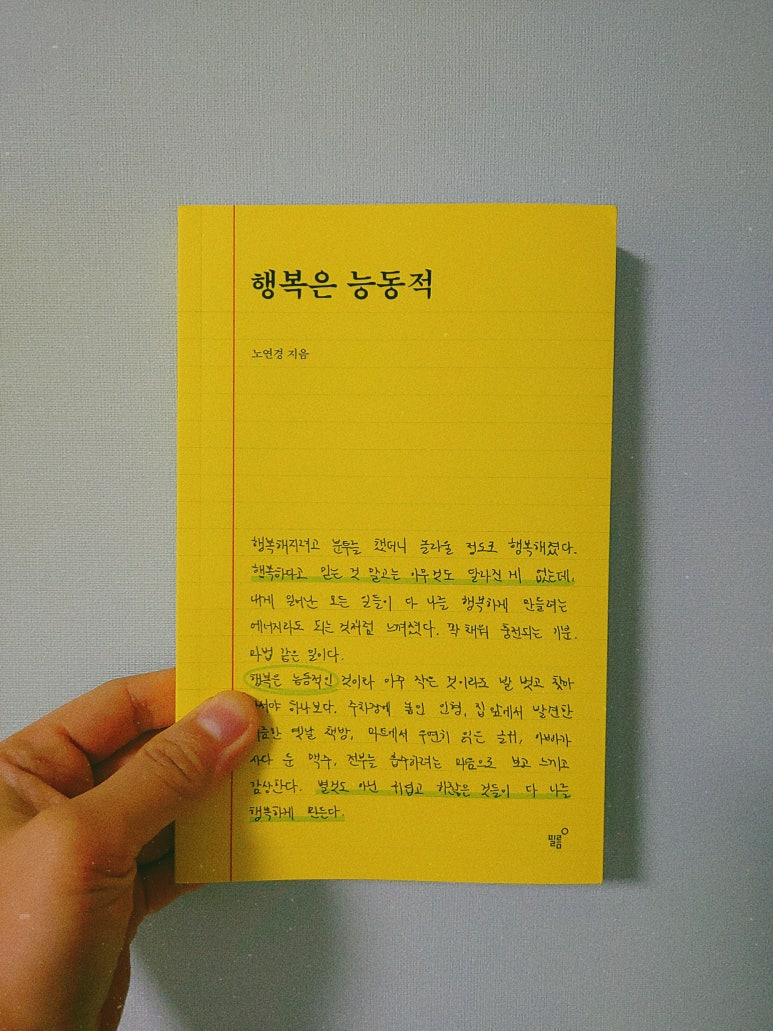 행복은 능동적
노연경 지음
행복해지려고 분투를 했더니 놀라울 정도로 행복해졌다.
행복하다고 믿는 것 말고는 아무것도 달라진 게 없는데,
내게 일어난 모든 일들이 다 나를 행복하게 만들려는
에너지라도 되는 것처럼 느껴졌다. 꽉 채워 충전되는 기분.
마법 같은 일이다.
행복은 능동적인 것이라 아주 작은 것이라도 발 벗고 찾아
하나보다. 주차장에 놓인 인형, 집 앞에서 발견한
옛날 책방, 마트에서 우연히 읽은 글귀, 아빠가
사다 둔 맥주, 전부를 흡수하려는 마음으로 보고 느끼고
감상한다. 별것도 아닌 귀엽고 하찮은 것들이 다 나를
행복하게 만든다.
필름